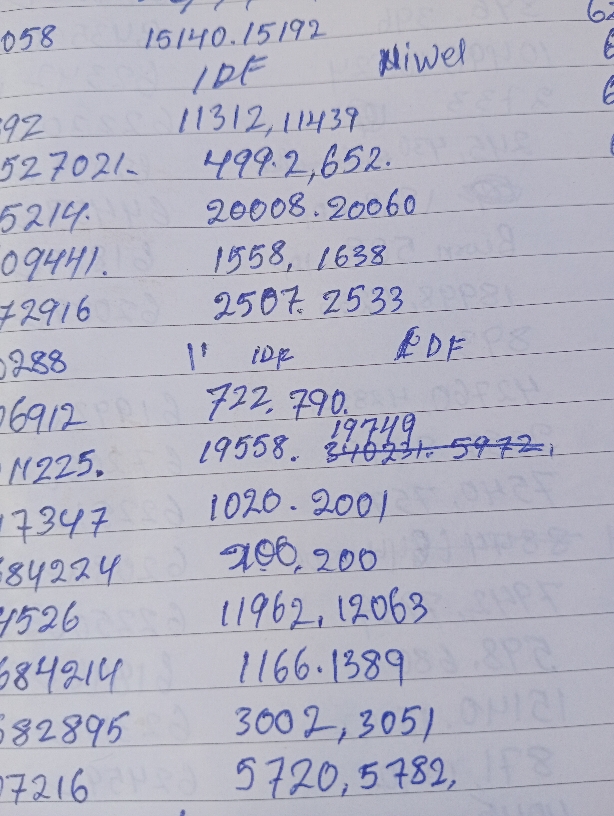 058 15140.15192
IDF Niwel
92 11312, 11439
527021- 499.2,652.
5214. 20008.20060
09441. 1558, 1638
72916 2507. 2533
0288 11 IDF IDF
06912 722, 790.
19749
11225. 19558. 340231. 5972,
17347 1020.2001
684224 200
4526 11962, 12063
684214 1166.1389
682895 3002, 3051
07216 5720, 5782,